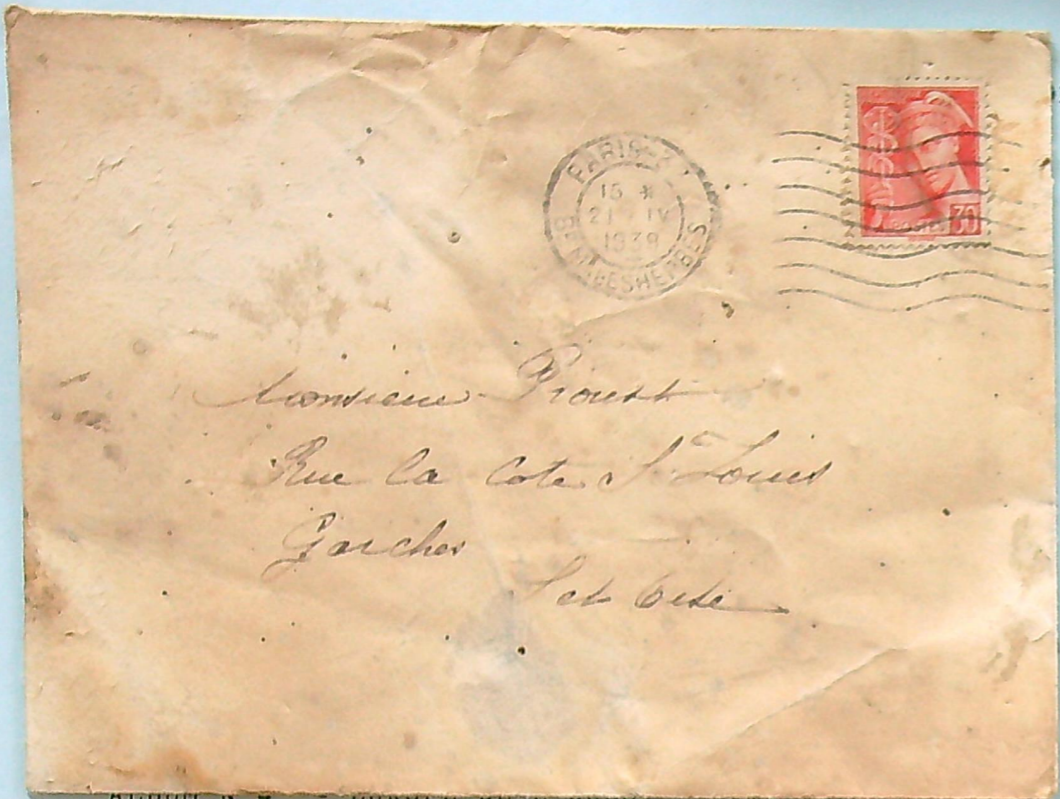 PARIS
15 *
21 IV
1939
Bd MALESHERBES
POSTES 30
Monsieur Proust
Rue la Cote St Louis
Garches
S et Oise